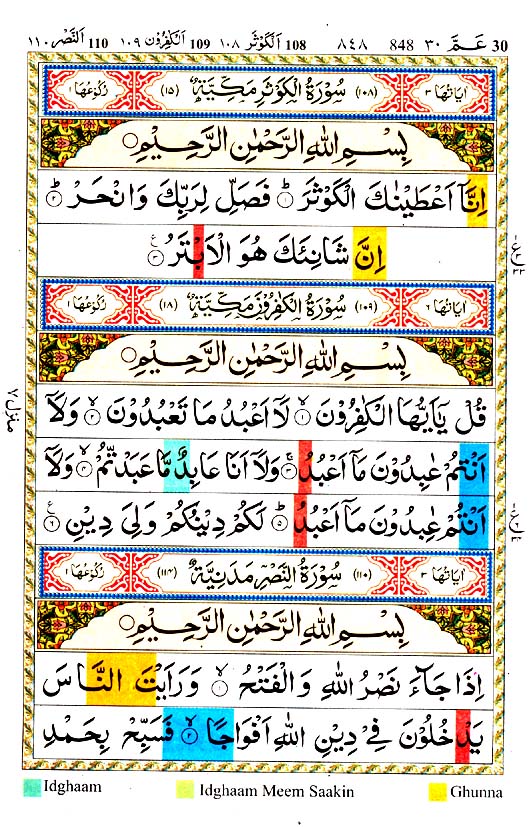 النَّصْر ١١٠ 110 الْكٰفِرُوْن ١٠٩ 109 الْكَوْثَر ١٠٨ 108 ٨٤٨ 848 عَـمَّ ٣٠ 30
اٰيَاتُهَا ٣ (١٠٨) سُوْرَةُ الْكَوْثَرِ مَكِّيَّةٌ (١٥) رُكُوْعُهَا ١
بِسْمِ اللّٰهِ الرَّحْمٰنِ الرَّحِيْمِ
اِنَّاۤ اَعْطَيْنٰكَ الْكَوْثَرَ ؕ ١ فَصَلِّ لِرَبِّكَ وَانْحَرْ ؕ ٢
اِنَّ شَانِئَكَ هُوَ الْاَبْتَرُ ٣ ع
اٰيَاتُهَا ٦ (١٠٩) سُوْرَةُ الْكٰفِرُوْنَ مَكِّيَّةٌ (١٨) رُكُوْعُهَا ١
بِسْمِ اللّٰهِ الرَّحْمٰنِ الرَّحِيْمِ
قُلْ يٰۤاَيُّهَا الْكٰفِرُوْنَ ۙ ١ لَاۤ اَعْبُدُ مَا تَعْبُدُوْنَ ۙ ٢ وَلَاۤ
اَنْتُمْ عٰبِدُوْنَ مَاۤ اَعْبُدُ ۚ ٣ وَلَاۤ اَنَا عَابِدٌ مَّا عَبَدْتُّمْ ۙ ٤ وَلَاۤ
اَنْتُمْ عٰبِدُوْنَ مَاۤ اَعْبُدُ ؕ ٥ لَكُمْ دِيْنُكُمْ وَلِيَ دِيْنِ ٦ ع
منزل ٧
اٰيَاتُهَا ٣ (١١٠) سُوْرَةُ النَّصْرِ مَدَنِيَّةٌ (١١٤) رُكُوْعُهَا ١
بِسْمِ اللّٰهِ الرَّحْمٰنِ الرَّحِيْمِ
اِذَا جَآءَ نَصْرُ اللّٰهِ وَالْفَتْحُ ۙ ١ وَرَاَيْتَ النَّاسَ
يَدْخُلُوْنَ فِيْ دِيْنِ اللّٰهِ اَفْوَاجًا ۙ ٢ فَسَبِّحْ بِحَمْدِ
Idghaam Idghaam Meem Saakin Ghunna